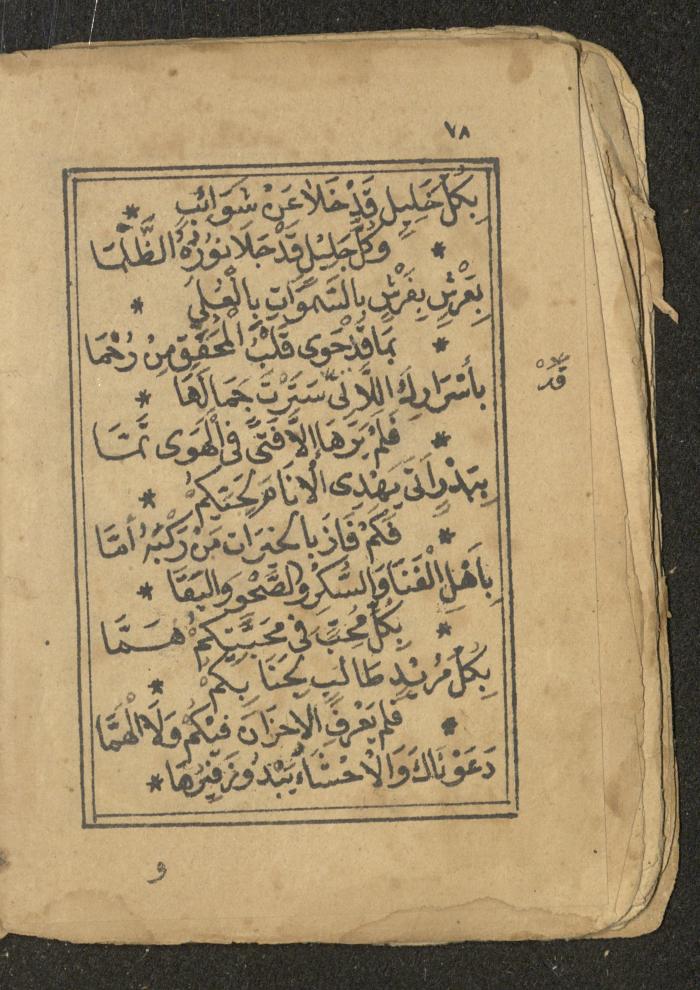 ٧٨
بِكُلِّ خَلِيلٍ قَدْ خَلَا عَنْ شَوَائِبٍ *
* وَكُلِّ جَلِيْلٍ قَدْ جَلَا نُوْرُهُ الظُّلْمَا
بِعَرْشٍ بِفَرْشٍ بِالسَّمٰوَاتِ بِالْعُلَى *
* بِمَا قَدْ حَوَى قَلْبُ الْمُحَقِّقِ مِنْ رُحْمَا
بِأَسْرَارِكَ اللَّاتِى سَتَرْتَ جَمَالَهَا *
* فَلَمْ يَرَهَا إِلَّا فَتًى فِى الْهَوَى تَمَّا
يَهْدِى الْأَنَامَ لِحَيِّكُمْ *
* فَكَمْ فَازَ بِالْخَيْرَاتِ مَنْ رَكْبَهُ أَمَّا
بِأَهْلِ الْفَنَا وَالسُّكْرِ وَالصَّحْوِ وَالبَقَا *
* بِكُلِّ مُحِبٍّ فِى مَحَبَّتِكُمْ هَمَّا
بِكُلِّ مُرِيْدٍ طَالِبٍ بِكُمْ *
* فَلَمْ يَعْرِفِ الْاحْزَانَ فِيْكُمْ وَلَا الْهَمَّا
دَعَوْنَاكَ وَالْاَحْشَاءُ يَبْدُو زَفِيْرُهَا *
قَدْ
و